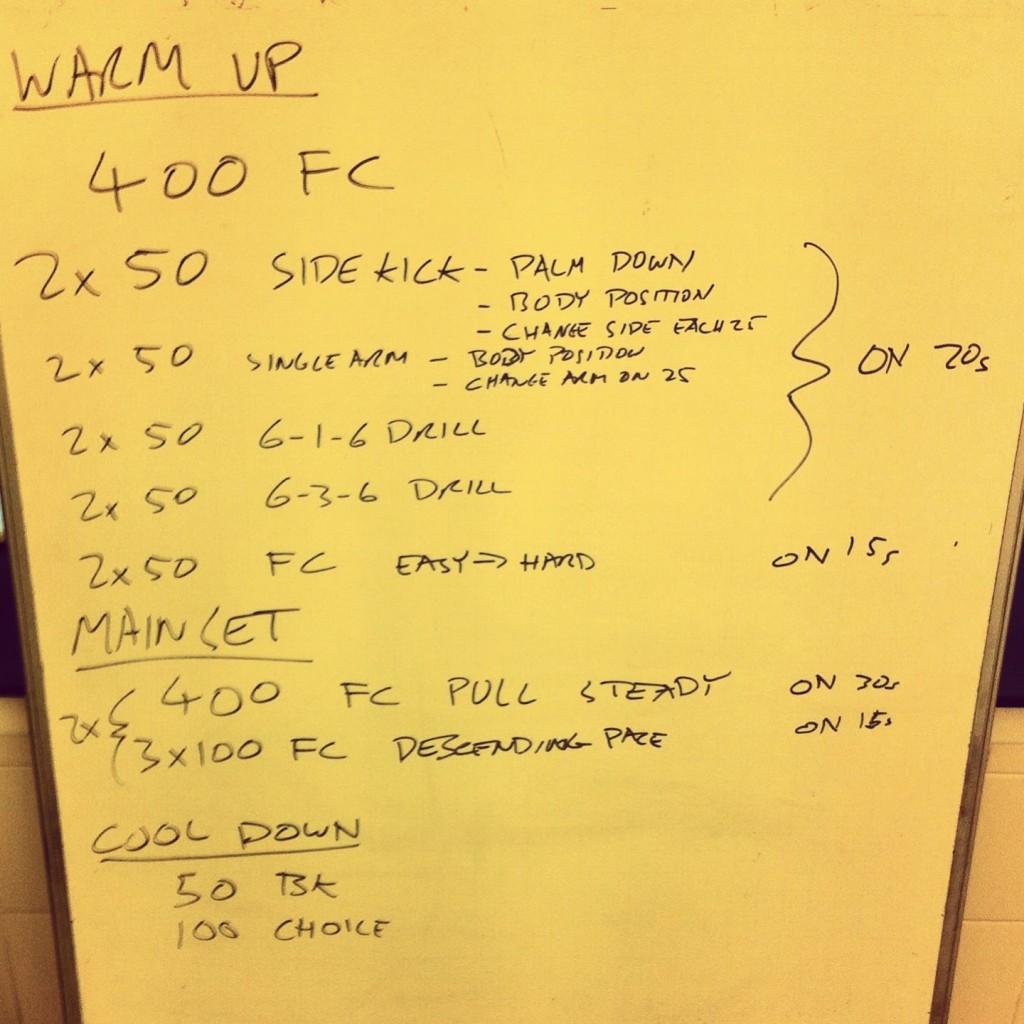 WARM UP
400 FC
2x 50 SIDE KICK - PALM DOWN
- BODY POSITION
- CHANGE SIDE EACH 25
2x 50 SINGLE ARM - BODY POSITION
- CHANGE ARM ON 25
ON 20s
2x 50 6-1-6 DRILL
2x 50 6-3-6 DRILL
2x50 FC EASY → HARD ON 15s
MAIN SET
2x { 400 FC PULL STEADY ON 30s
3x100 FC DESCENDING PACE ON 15s
COOL DOWN
50 BK
100 CHOICE